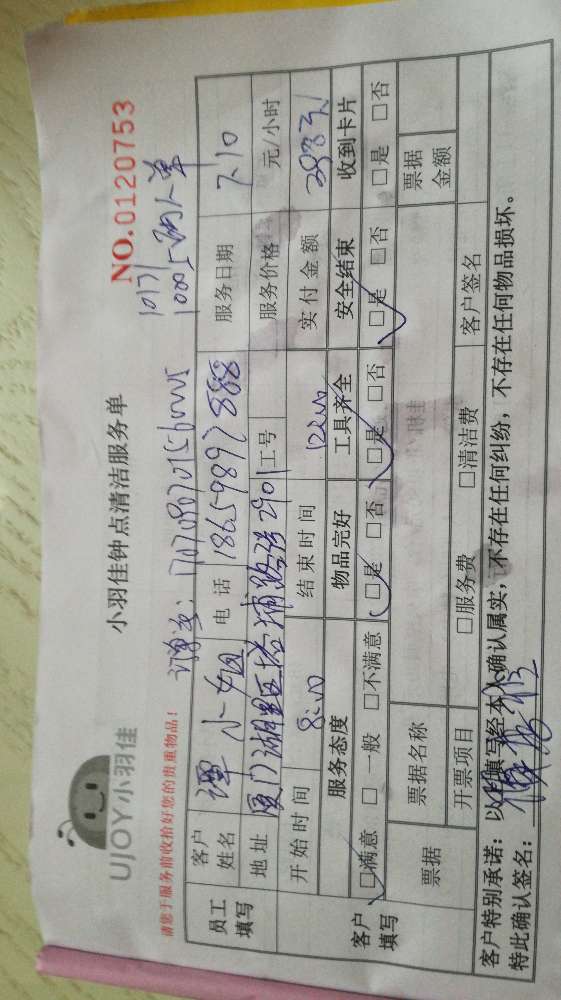 UJOY小羽佳
小羽佳钟点清洁服务单
NO.0120753
请您于服务前收拾好您的贵重物品!
10171
1000
员工填写
客户姓名 谭小姐 电话 18659897888 服务日期 7.10
地址 厦门湖里区塔埔路 2901 工号 服务价格 元/小时
开始时间 8:00 结束时间 12:00 实付金额
客户填写
服务态度 物品完好 工具齐全 安全结束 收到卡片
□满意 □一般 □不满意 □是 □否 □是 □否 □是 □否 □是 □否
票据 票据名称 票据金额
开票项目 □服务费 □清洁费 客户签名
客户特别承诺:以上填写经本人确认属实,不存在任何纠纷,不存在任何物品损坏。
特此确认签名: